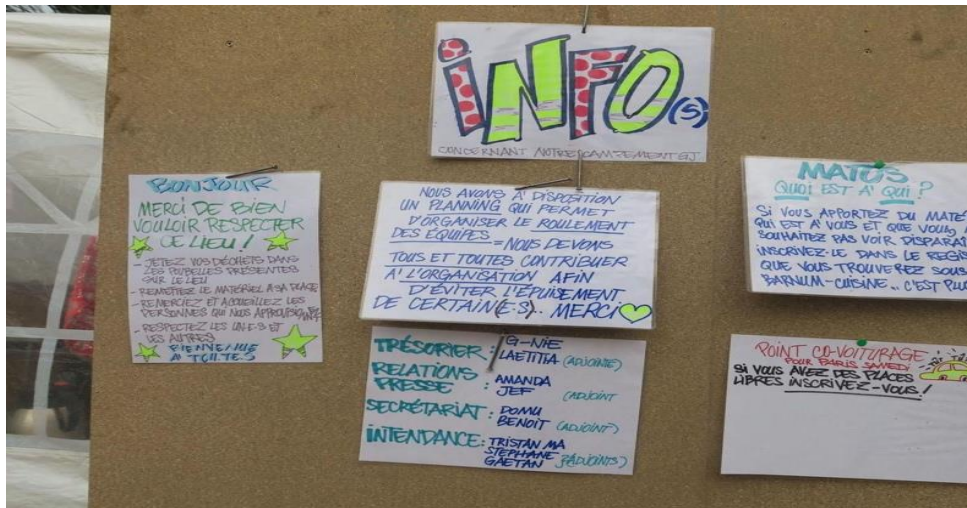 iNFO(S)
CONCERNANT NOTRE CAMPEMENT GJ
BONJOUR
MERCI DE BIEN
VOULOIR RESPECTER
CE LIEU !
- JETEZ VOS DÉCHETS DANS
LES POUBELLES PRÉSENTES
SUR LE LIEU
- REMETTEZ LE MATÉRIEL A SA PLACE
- REMERCIEZ ET ACCUEILLEZ LES
PERSONNES QUI NOUS
- RESPECTEZ LES UN-E-S ET
LES AUTRES
BIENVENUE
A TOUTES
NOUS AVONS A' DISPOSITION
UN PLANNING QUI PERMET
D'ORGANISER LE ROULEMENT
DES ÉQUIPES = NOUS DEVONS
TOUS ET TOUTES CONTRIBUER
A' L'ORGANISATION AFIN
D'ÉVITER L'ÉPUISEMENT
DE CERTAIN(E·S). MERCI
TRÉSORIER : G-NIE
LAETITIA (ADJOINTE)
RELATIONS
PRESSE : AMANDA
JEF (ADJOINT
SECRÉTARIAT : DOMU
BENOIT (ADJOINT)
INTENDANCE : TRISTAN MA
STEPHANE
GAETAN (ADJOINTS)
MATOS
QUOI EST A' QUI ?
SI VOUS APPORTEZ DU MATÉ
QUI EST A' VOUS ET QUE VOUS
SOUHAITEZ PAS VOIR DISPARAÎ
INSCRIVEZ-LE DANS LE REGIS
QUE VOUS TROUVEREZ SOUS
BARNUM-CUISINE.. C'EST PLUS
POINT CO-VOITURAGE
POUR PARIS SAMEDI
SI VOUS AVEZ DES PLACES
LIBRES INSCRIVEZ-VOUS !